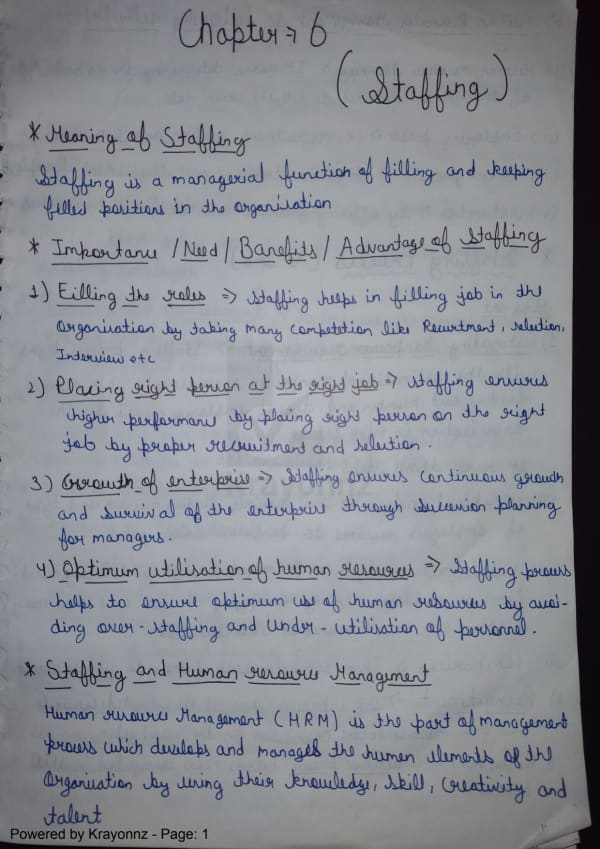 Chapter => 6
(Staffing)
* Meaning of Staffing
Staffing is a managerial function of filling and keeping
filled positions in the organisation
* Importance / Need / Banefits / Advantage of Staffing
1) Filling the roles => Staffing helps in filling job in the
Organisation by taking many competetion like Recuitment, selection,
Interview etc
2) Placing right person at the right job => staffing ensures
higher performance by placing right person on the right
job by proper recruitment and selection.
3) Growth of enterprise => Staffing ensures continuous growth
and survival of the enterprise through succession planning
for managers.
4) Optimum utilisation of human resources => Staffing process
helps to ensure optimum use of human resources by avoi-
ding over-staffing and under-utilisation of personnel.
* Staffing and Human resource Management
Human resource Management (HRM) is the part of management
process which develops and manages the human elements of the
Organisation by using their knowledge, skill, creativity and
talent
Powered by Krayonnz - Page: 1